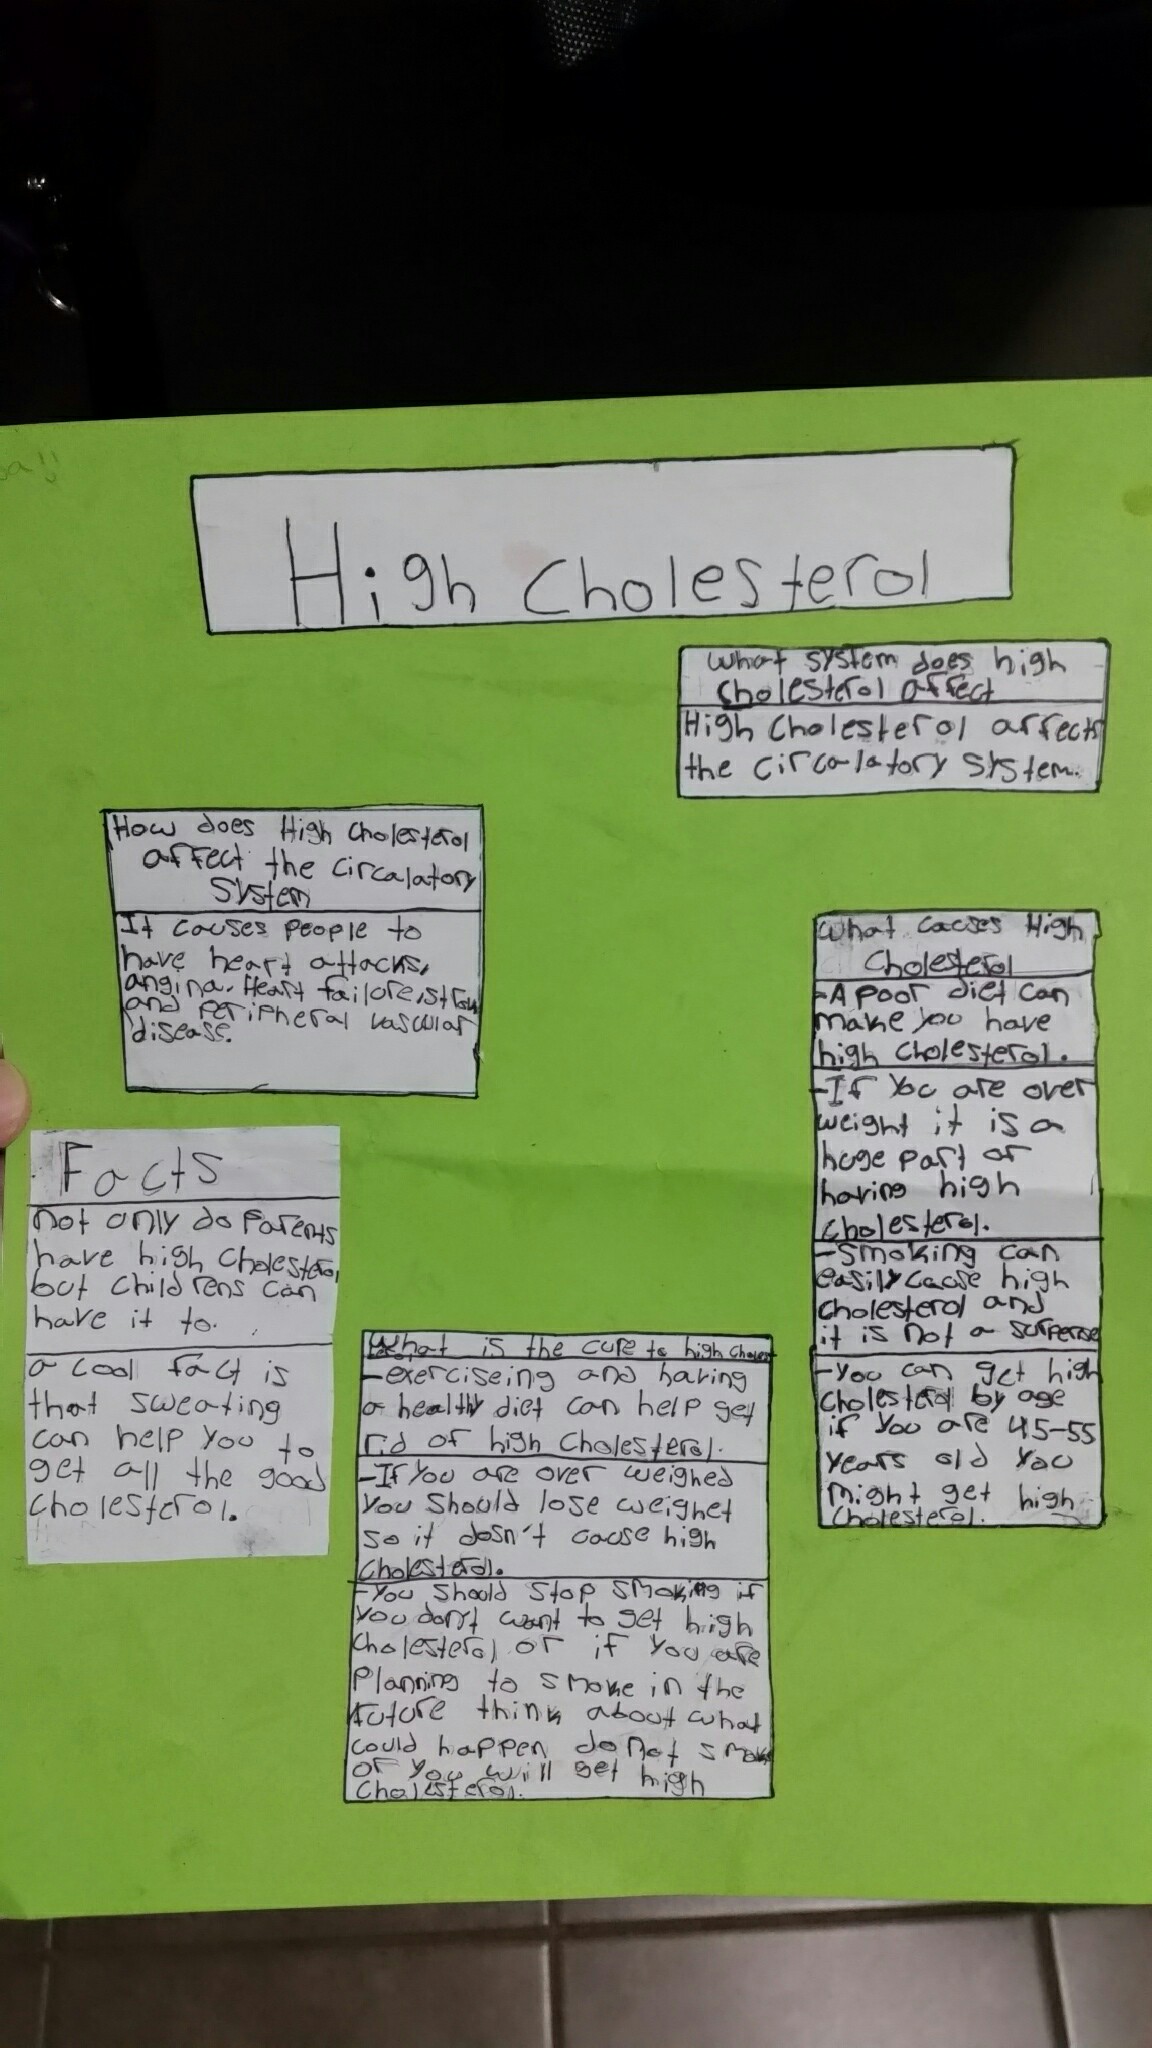 High Cholesterol
What system does high
cholesterol affect
High Cholesterol affects
the circalatory system.
How does High Cholesterol
affect the circalatory
System
It causes people to
have heart attacks,
angina. Heart failore, strok
and peripheral vascular
disease.
What causes High
Cholesterol
-A poor diet can
make you have
high Cholesterol.
-If you are over
weight it is a
huge part of
having high
cholesterol.
-smoking can
easily cause high
cholesterol and
it is not a surpense
-you can get high
cholesterol by age
if you are 45-55
years old you
might get high
cholesterol.
Facts
not only do Parents
have high Cholesterol
but childrens can
have it to.
a cool fact is
that sweating
can help you to
get all the good
cholesterol.
What is the cure to high cholest
-exerciseing and having
a healthy diet can help get
rid of high Cholesterol.
-If you are over weighed
you should lose weighet
so it doesn't cause high
cholesterol.
-You should stop smoking if
you don't want to get high
cholesterol or if you are
planning to smoke in the
future think about what
could happen do not smoke
or you will get high
Cholesterol.